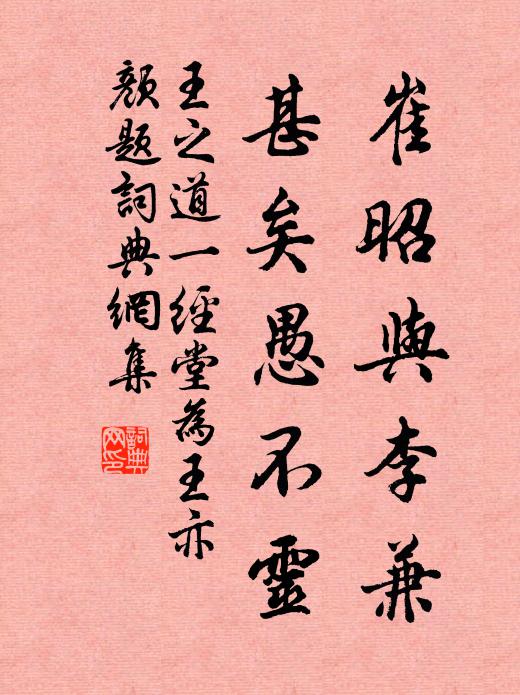 崔昭與李兼
甚矣愚不靈
王之道一經堂為王亦
顏題詞典網集
詞典網印